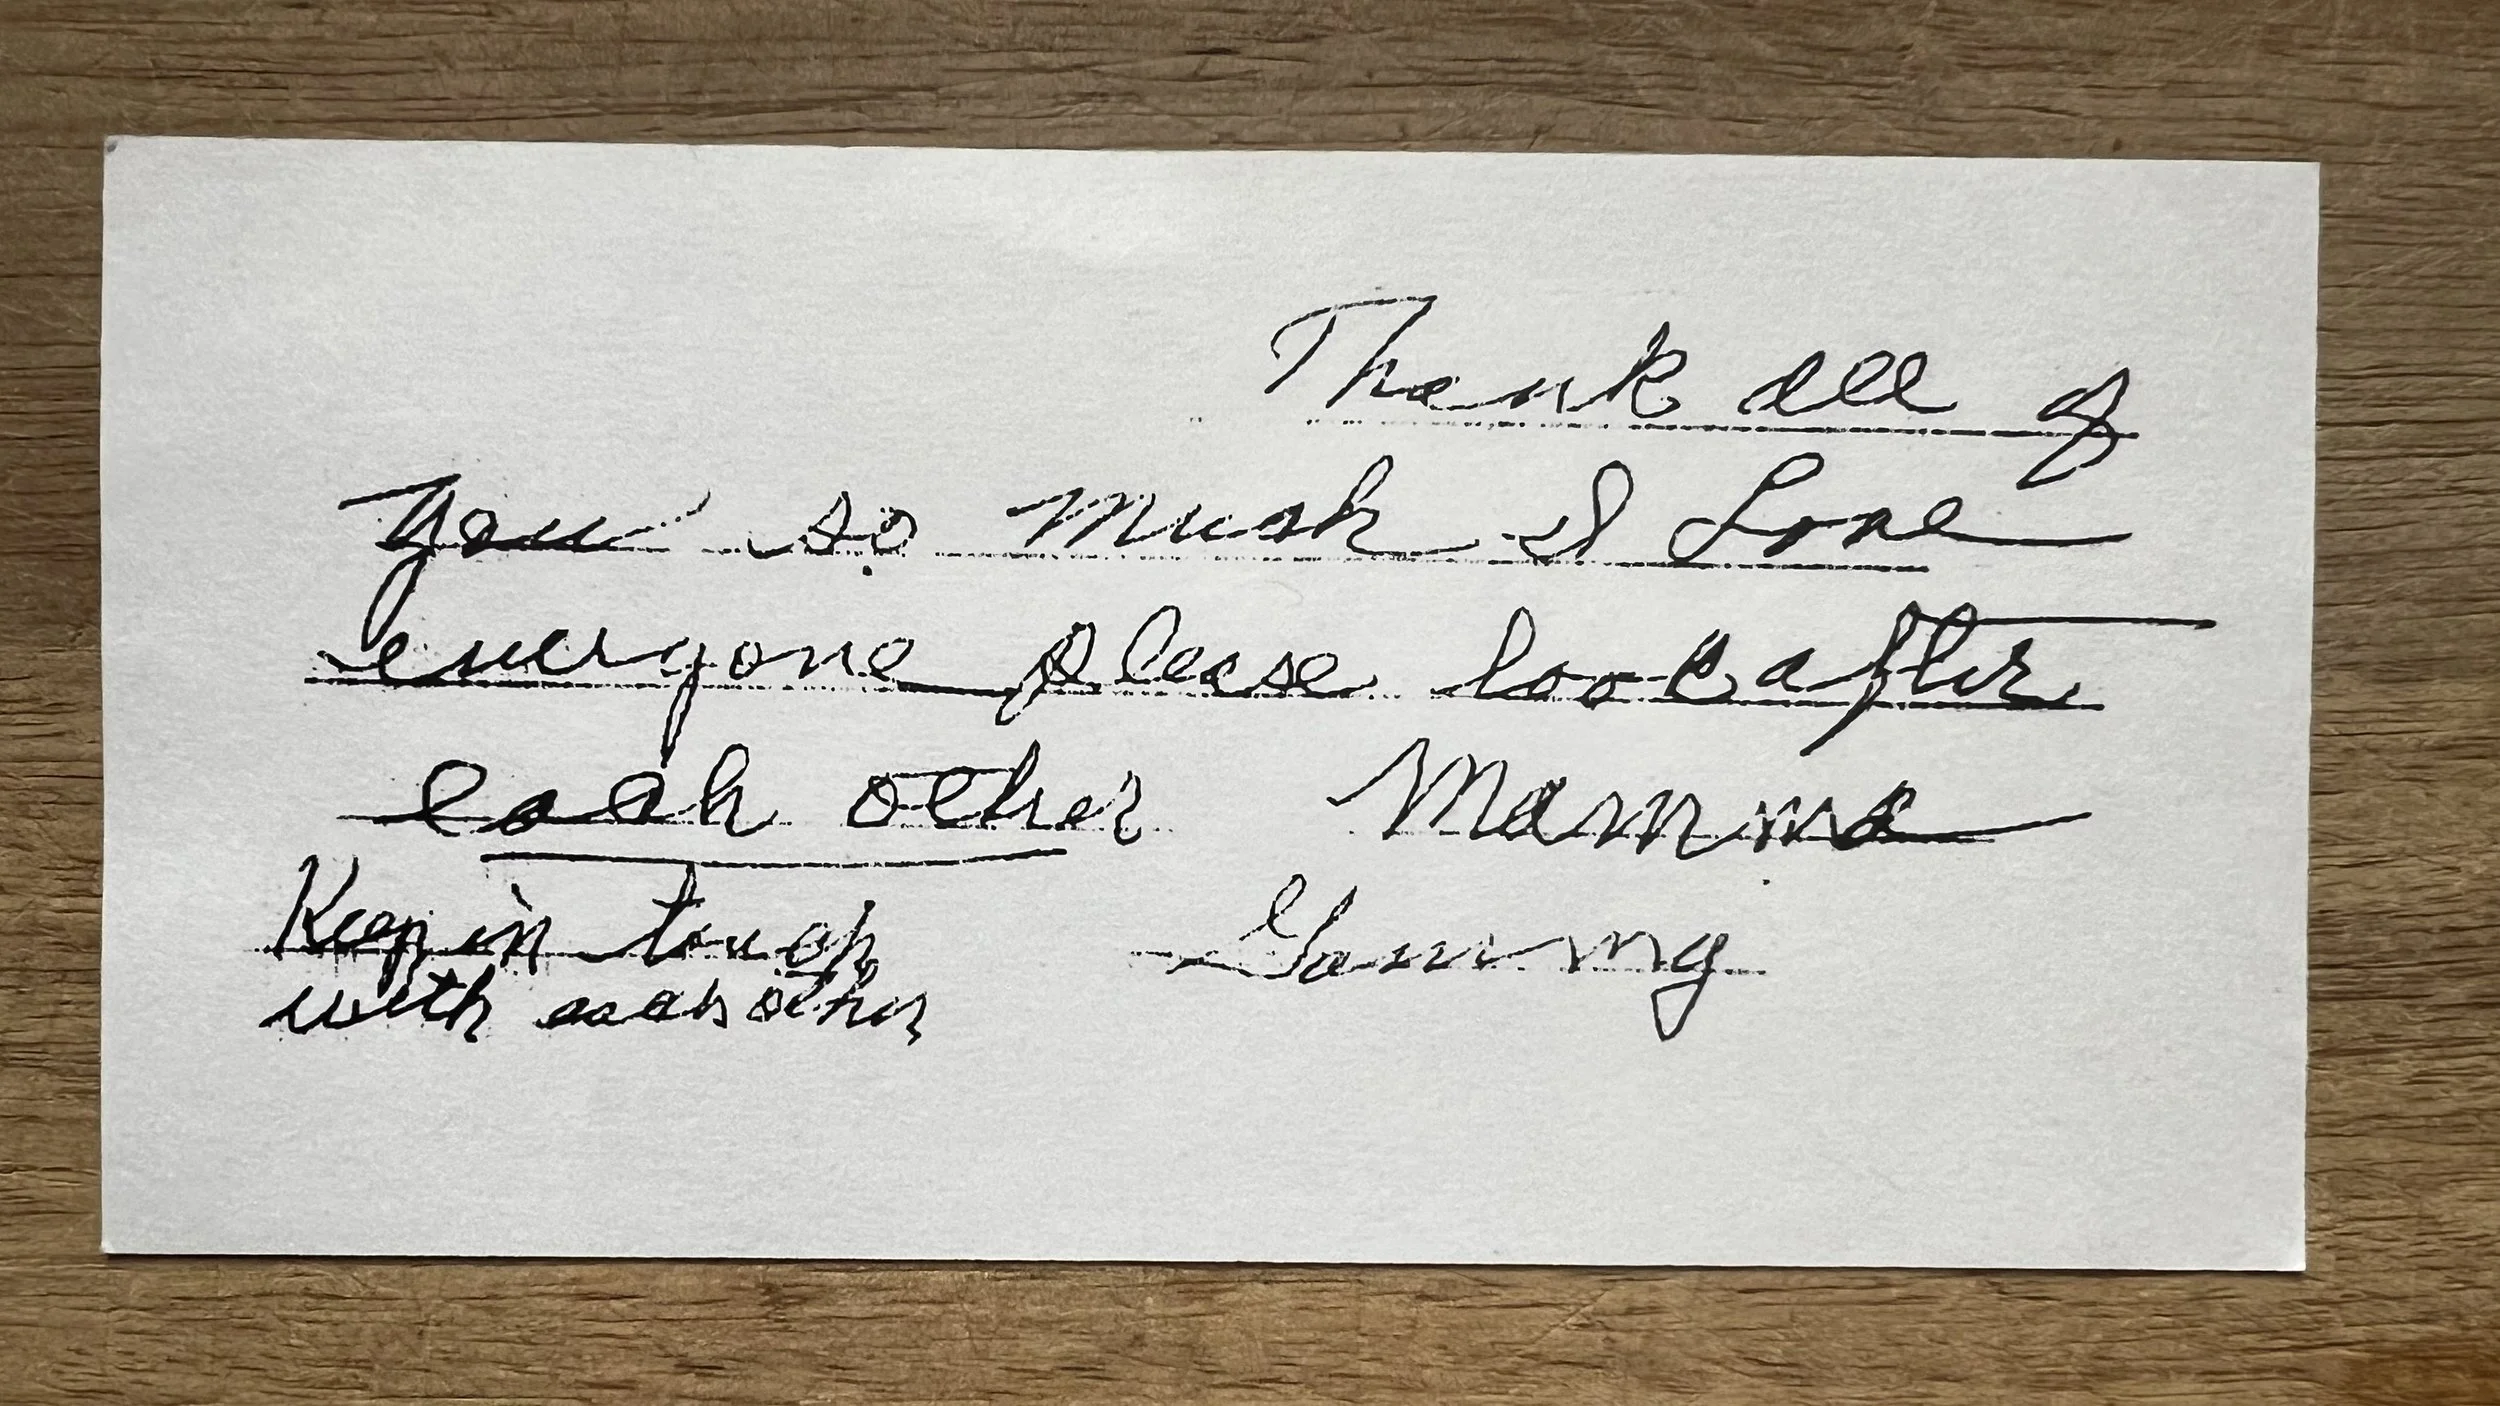 Thank all of
you so much I Love
everyone please look after
each other Mamma
Keep in touch
with each other